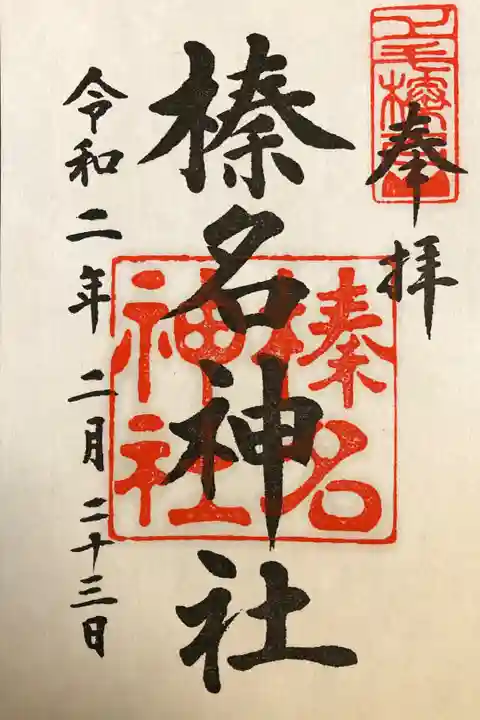 奉拝
榛名神社
榛名
神社
令和二年 二月二十三日